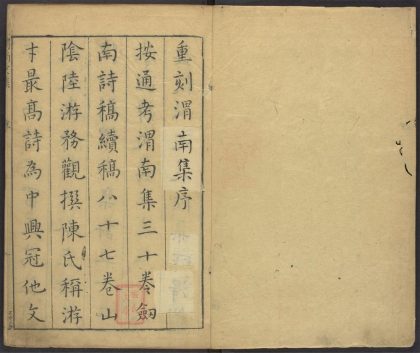 重刻渭南集序
按通考渭南集三十卷劔
南詩稿續稿八十七卷山
陰陸游務觀撰陳氏稱游
才最高詩為中興冠他文